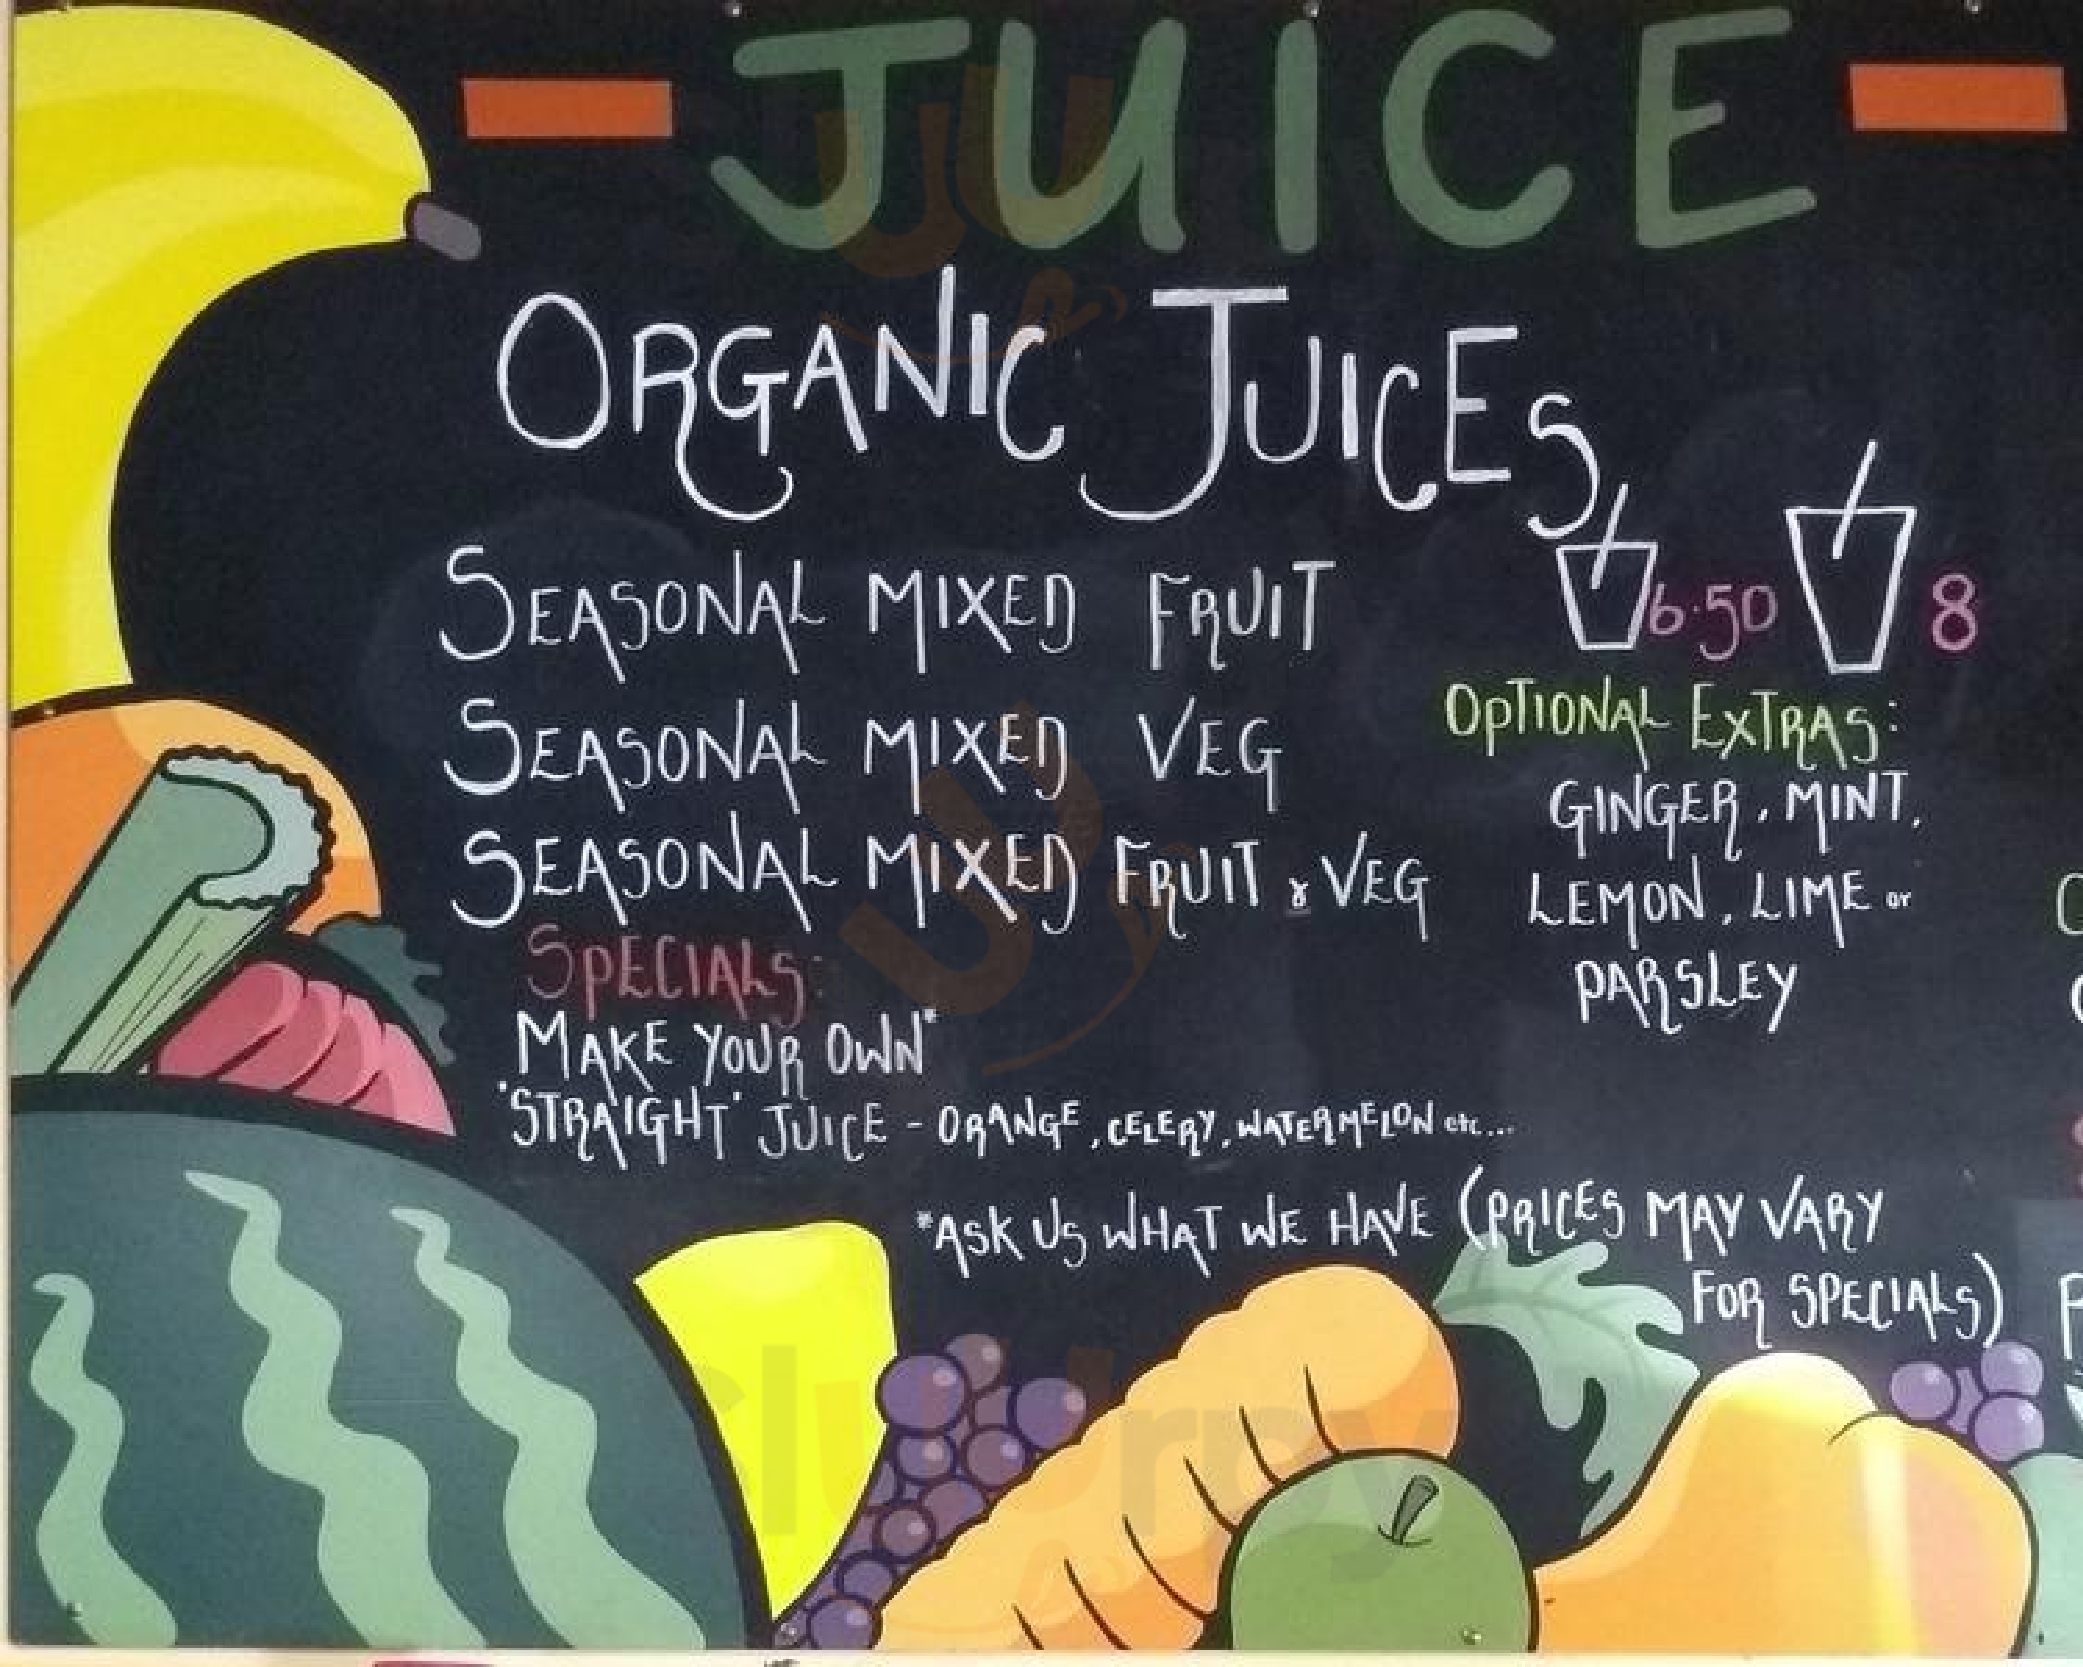 JUICE
ORGANIC JUICES
SEASONAL MIXED FRUIT
6.50 8
SEASONAL MIXED VEG
SEASONAL MIXED FRUIT & VEG
OPTIONAL EXTRAS:
GINGER, MINT,
LEMON, LIME or
PARSLEY
SPECIALS:
MAKE YOUR OWN*
'STRAIGHT' JUICE - ORANGE, CELERY, WATERMELON etc...
*ASK US WHAT WE HAVE (PRICES MAY VARY
FOR SPECIALS)
Slurpy